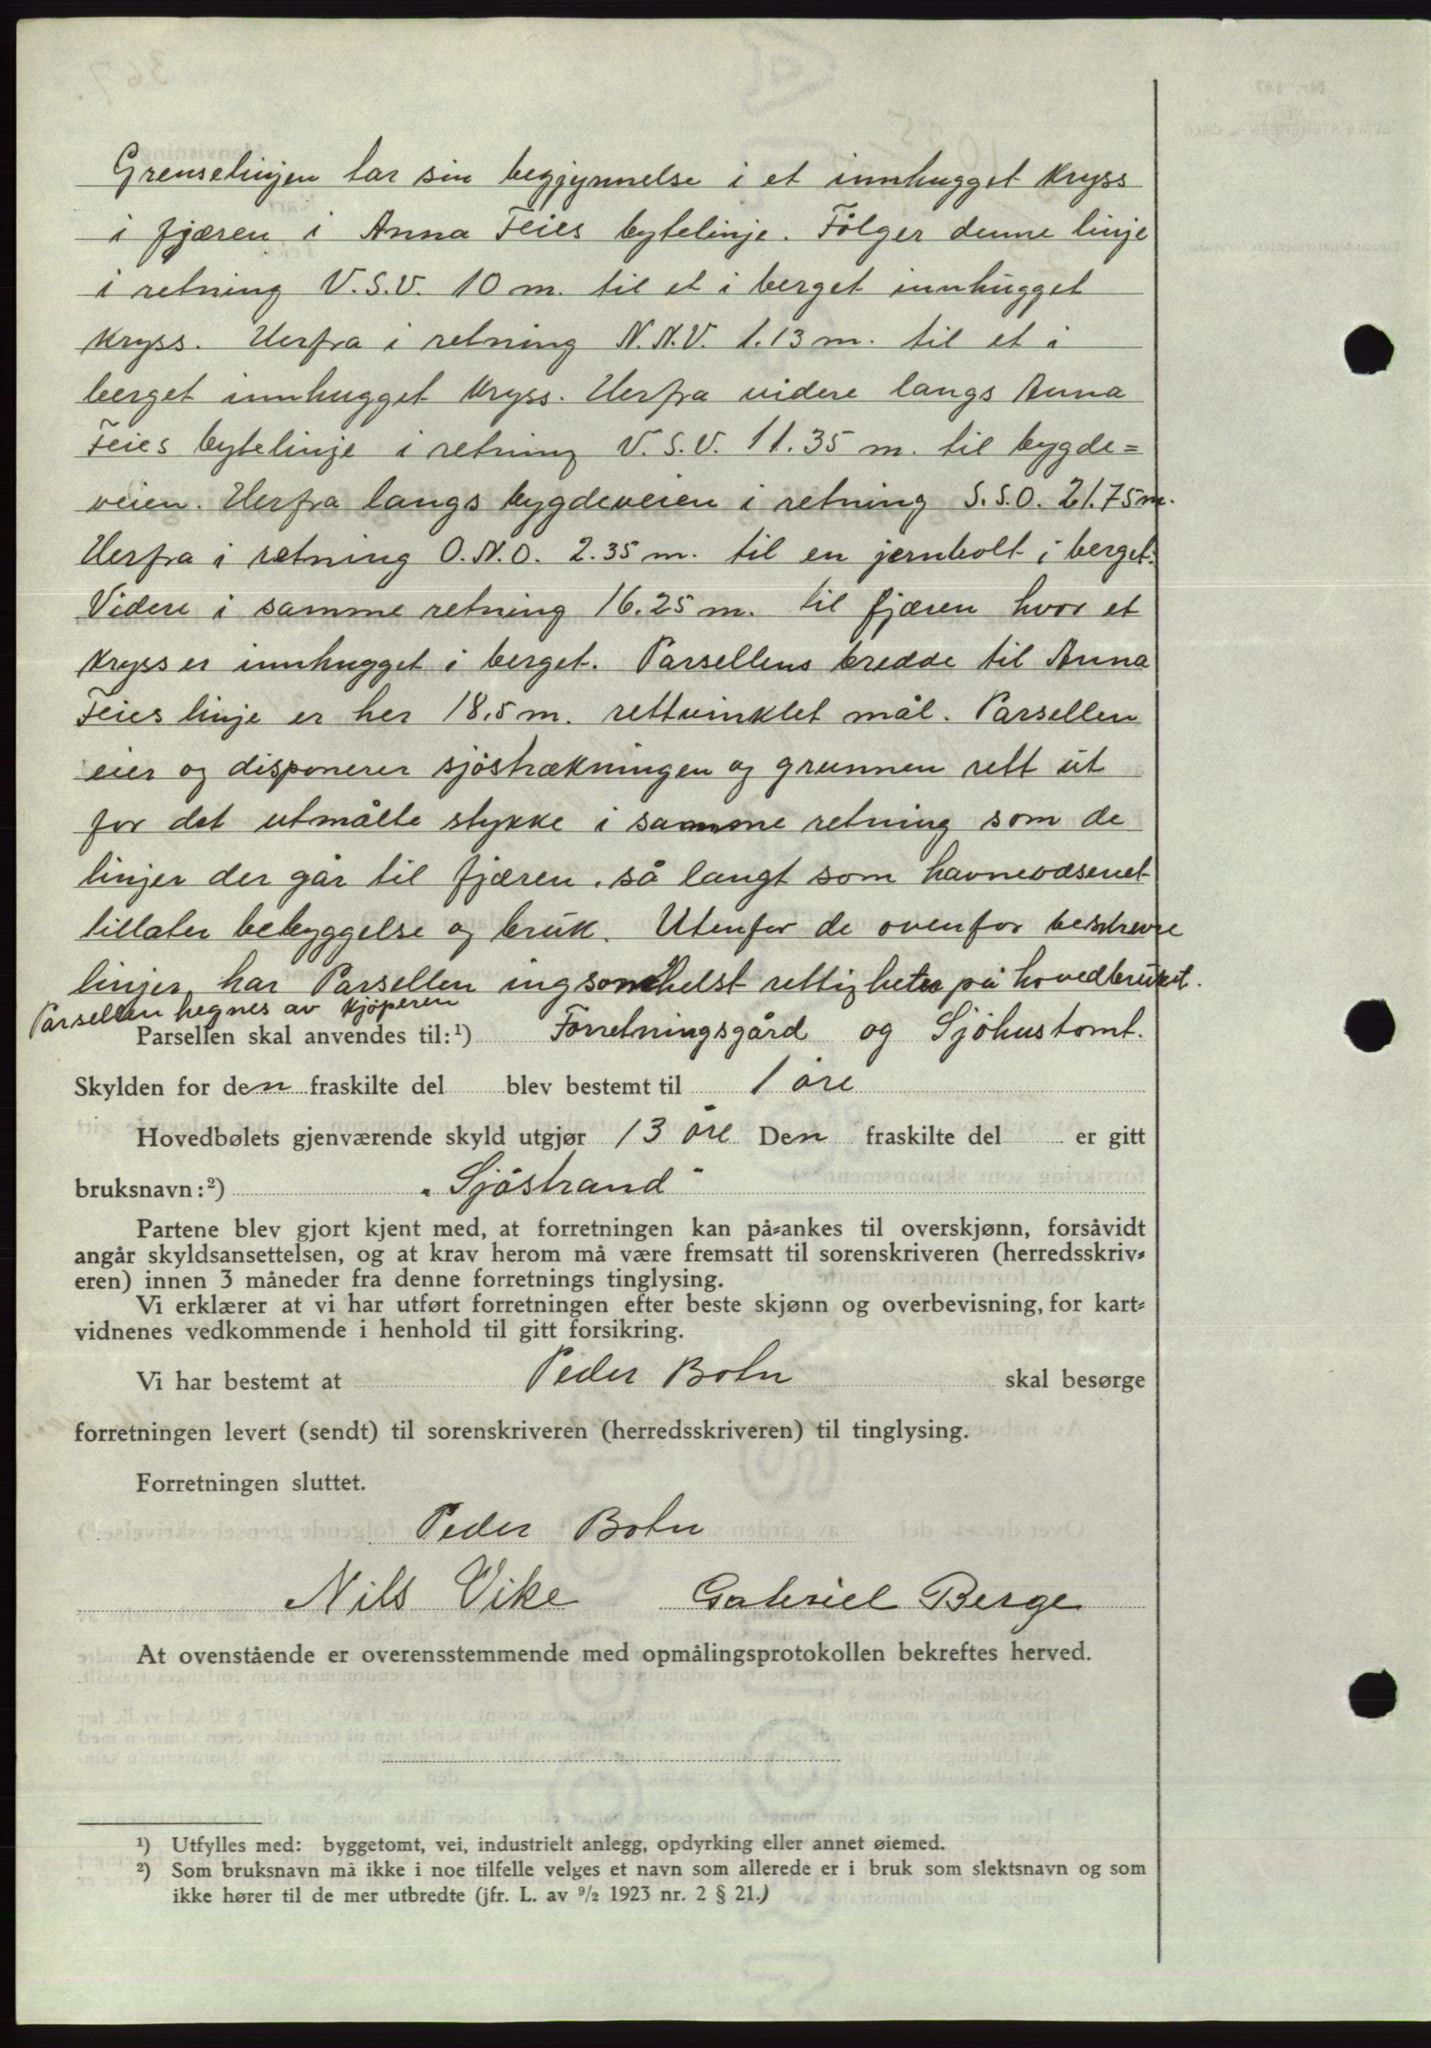 Grenselinjen tar sin begjynnelse i et innhugget kryss
i fjæren i Anna Feies bytelinje. Følger denne linje
i retning V.S.V. 10 m. til et i berget innhugget
kryss. Herfra i retning N.N.V. 1.13 m. til et i
berget innhugget kryss. Herfra videre langs Anna
Feies bytelinje i retning V.S.V. 11.35 m. til bygde=
veien. Herfra langs bygdeveien i retning S.S.O. 21.75 m.
Herfra i retning O.N.O. 2.35 m. til en jernbolt i berget.
Videre i samme retning 16.25 m. til fjæren hvor et
kryss er innhugget i berget. Parsellens bredde til Anna
Feies linje er her 18,5 m. rettvinklet mål. Parsellen
eier og disponerer sjøstrækningen og grunnen rett ut
for det utmålte stykke i samme retning som de
linjer der går til fjæren, så langt som havnevæsenet
tillater bebyggelse og bruk. Utenfor de ovenfor beskrevne
linjer har Parsellen ingsomhelst rettigheter på hovedbruket.
Parsellen hegnes av kjøperen
Parsellen skal anvendes til:¹) Forretningsgård og Sjøhustomt.
Skylden for den fraskilte del blev bestemt til 1 øre
Hovedbølets gjenværende skyld utgjør 13 øre Den fraskilte del er gitt
bruksnavn:²) "Sjøstrand"
Partene blev gjort kjent med, at forretningen kan på=ankes til overskjønn, forsåvidt
angår skyldsansettelsen, og at krav herom må være fremsatt til sorenskriveren (herredsskriv=
eren) innen 3 måneder fra denne forretnings tinglysing.
Vi erklærer at vi har utført forretningen efter beste skjønn og overbevisning, for kart=
vidnenes vedkommende i henhold til gitt forsikring.
Vi har bestemt at Peder Botn skal besørge
forretningen levert (sendt) til sorenskriveren (herredsskriveren) til tinglysing.
Forretningen sluttet.
Peder Botn
Nils Vike Gabriel Berge
At ovenstående er overensstemmende med opmålingsprotokollen bekreftes herved.
¹) Utfylles med: byggetomt, vei, industrielt anlegg, opdyrking eller annet øiemed.
²) Som bruksnavn må ikke i noe tilfelle velges et navn som allerede er i bruk som slektsnavn og som
ikke hører til de mer utbredte (jfr. L. av ⁹/₂ 1923 nr. 2 § 21.)